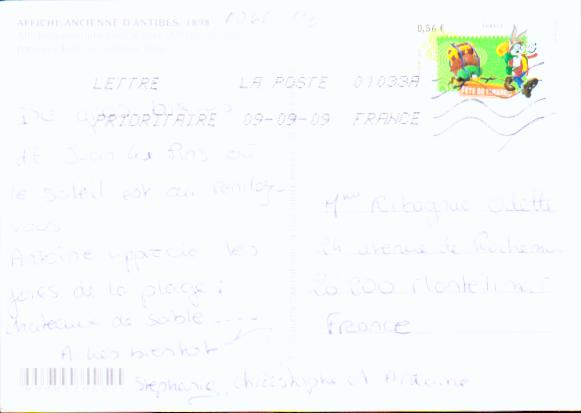 AFFICHE ANCIENNE D'ANTIBES, 1898
0,56 €
FRANCE
FÊTE DU TIMBRE
LETTRE LA POSTE 01033A
PRIORITAIRE 09-09-09 FRANCE
De
et Juan les Pins où
le soleil est au rendez-
vous
Antoine apprécie les
joies de la plage :
chateaux de sable
A très bientôt
Stéphanie, Christophe et Antoine
Mme Ribagnac Odette
24 avenue de Rochemaure
26 200 Montélimar
France